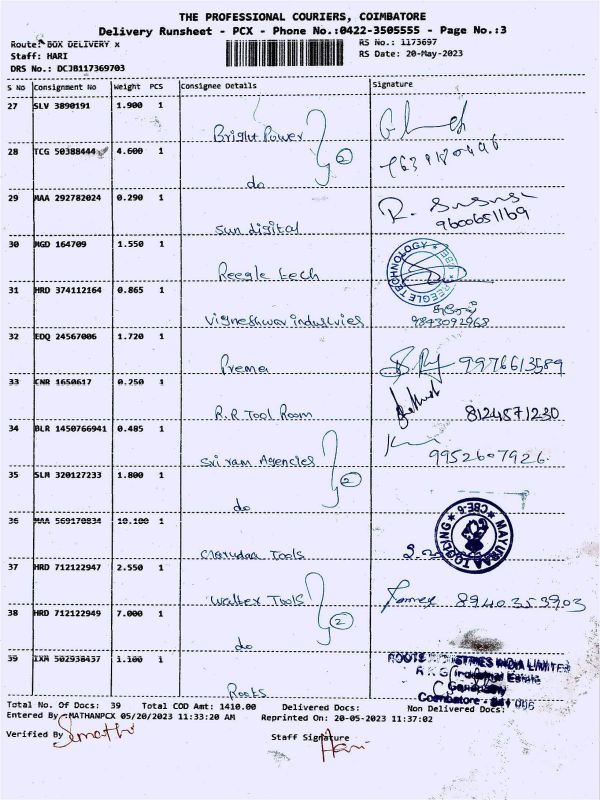 THE PROFESSIONAL COURIERS, COIMBATORE
Delivery Runsheet - PCX - Phone No.:0422-3505555 - Page No.:3
Route: BOX DELIVERY x
RS No.: 1173697
Staff: HARI
RS Date: 20-May-2023
DRS No.: DCJB117369703
S No Consignment No Weight PCS Consignee Details Signature
27 SLV 3890191 1.900 1 Bright Power
28 TCG 50388444 4.600 1 do 2
29 MAA 292782024 0.290 1 Sun digital R. 9600651169
30 MGD 164709 1.550 1 Reegle tech REEGLE TECHNOLOGY
31 HRD 374112164 0.865 1 Vigneshwar industries 9843092968
32 EDQ 24567006 1.720 1 Prema 9976613589
33 CNR 1650617 0.250 1 R.R Tool Room 8124571230
34 BLR 1450766941 0.485 1 Sri ram Agencies 9952607926
35 SLM 320127233 1.800 1 do 2
36 MAA 569170834 10.100 1 Tools MAYURAA TOOLING CBE-6
37 HRD 712122947 2.550 1 Walter Tools 8940353903
38 HRD 712122949 7.000 1 do 2
39 IXM 502938437 1.100 1 Roots
INDIA LIMITED
Industrial Estate
Ganapathy
Coimbatore - 641 006
Total No. Of Docs: 39 Total COD Amt: 1410.00 Delivered Docs: Non Delivered Docs:
Entered By :MATHANPCX 05/20/2023 11:33:20 AM Reprinted On: 20-05-2023 11:37:02
Verified By
Staff Signature Hari